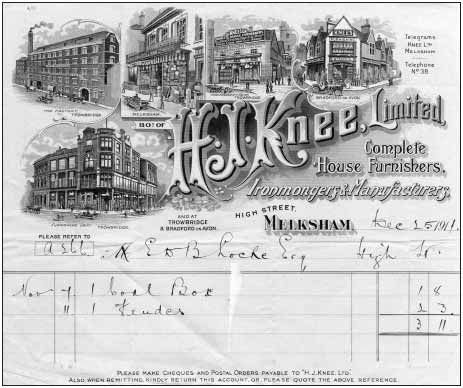 Telegrams
KNEE LTD
MELKSHAM.
Telephone
No 38
THE FACTORY. TROWBRIDGE
MELKSHAM.
TROWBRIDGE
BRADFORD ON AVON.
BOT OF
H.J. Knee, Limited,
Complete
House Furnishers,
Ironmongers & Manufacturers,
FURNISHING DEPT TROWBRIDGE.
AND AT
TROWBRIDGE
& BRADFORD ON AVON.
HIGH STREET,
MELKSHAM,
Dec 25 1919.
PLEASE REFER TO
E & B Locke Esq High St.
Nov 7. 1 Coal Box 1 8
" 1 Fender 2 3
3 11
PLEASE MAKE CHEQUES AND POSTAL ORDERS PAYABLE TO "H.J. KNEE, LTD."
ALSO, WHEN REMITTING, KINDLY RETURN THIS ACCOUNT, OR, PLEASE QUOTE THE ABOVE REFERENCE.